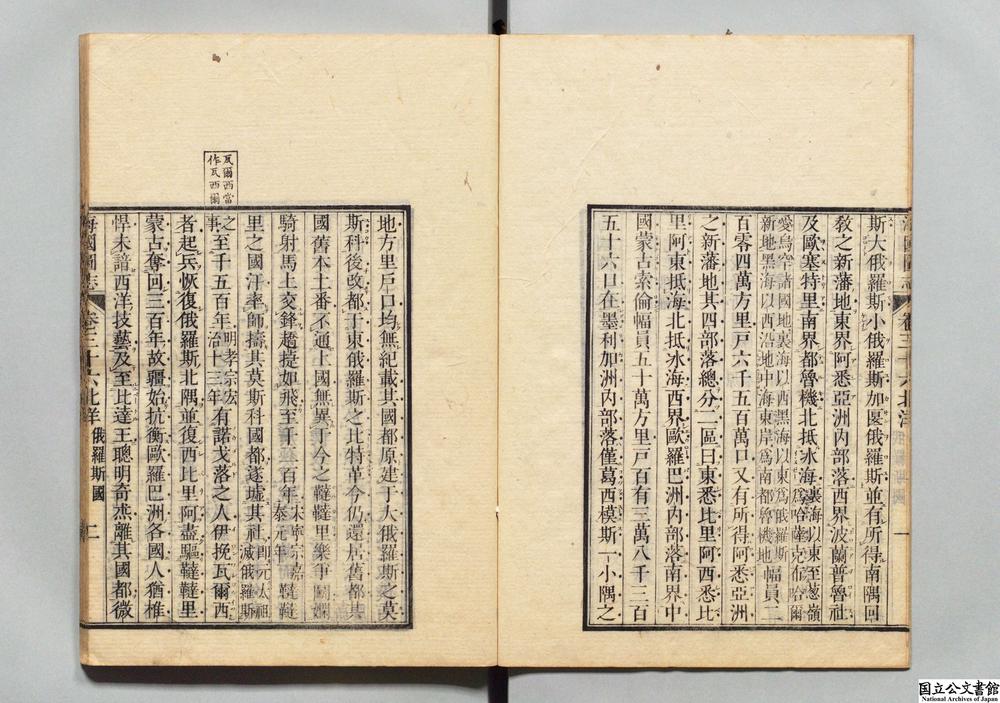 斯大俄羅斯小俄羅斯加匽俄羅斯並有所得南隅回
敎之新藩地東界阿悉亞洲內部落西界波蘭普魯社
及歐塞特里南界都魯機北抵冰海裏海以東至葱嶺
愛烏罕諸國地裏海以西黑海以東爲俄羅斯
新地黑海以西沿地中海東岸爲南都魯機地幅員二
百零四萬方里戸六千五百萬口又有所得阿悉亞洲
之新藩地其四部落總分二區曰東悉比里阿西悉比
里阿東抵海北抵冰海西界歐羅巴洲內部落南界中
國蒙古索倫幅員五十萬方里戸百有三萬八千三百
五十六口在墨利加洲內部落僅葛西模斯一小隅之
海國圖志
卷三十六北洋
一
地方里戸口均無紀載其國都原建于大俄羅斯之莫
斯科後改都于東俄羅斯之比特革今仍還居舊都其
國舊本土番不通上國無異于今之韃韃里樂爭鬭嫻
騎射馬上交鋒趫捷如飛至千二百年宋寧宗嘉
泰元年韃韃
里之國汗率師擣其莫斯科國都遂墟其社卽元太祖
滅俄羅斯
之
事至千五百年明孝宗宏
治十三年有諾戈落之人伊挽瓦爾西
者起兵恢復俄羅斯北隅並復西比里阿盡驅韃韃里
蒙古奪回三百年故疆始抗衡歐羅巴洲各國人猶椎
悍未諳西洋技藝及至比達王聰明奇杰離其國都微
瓦爾西當
作瓦西爾
海國圖志
卷三十六北洋
俄羅斯國
二
国立公文書館
National Archives of Japan